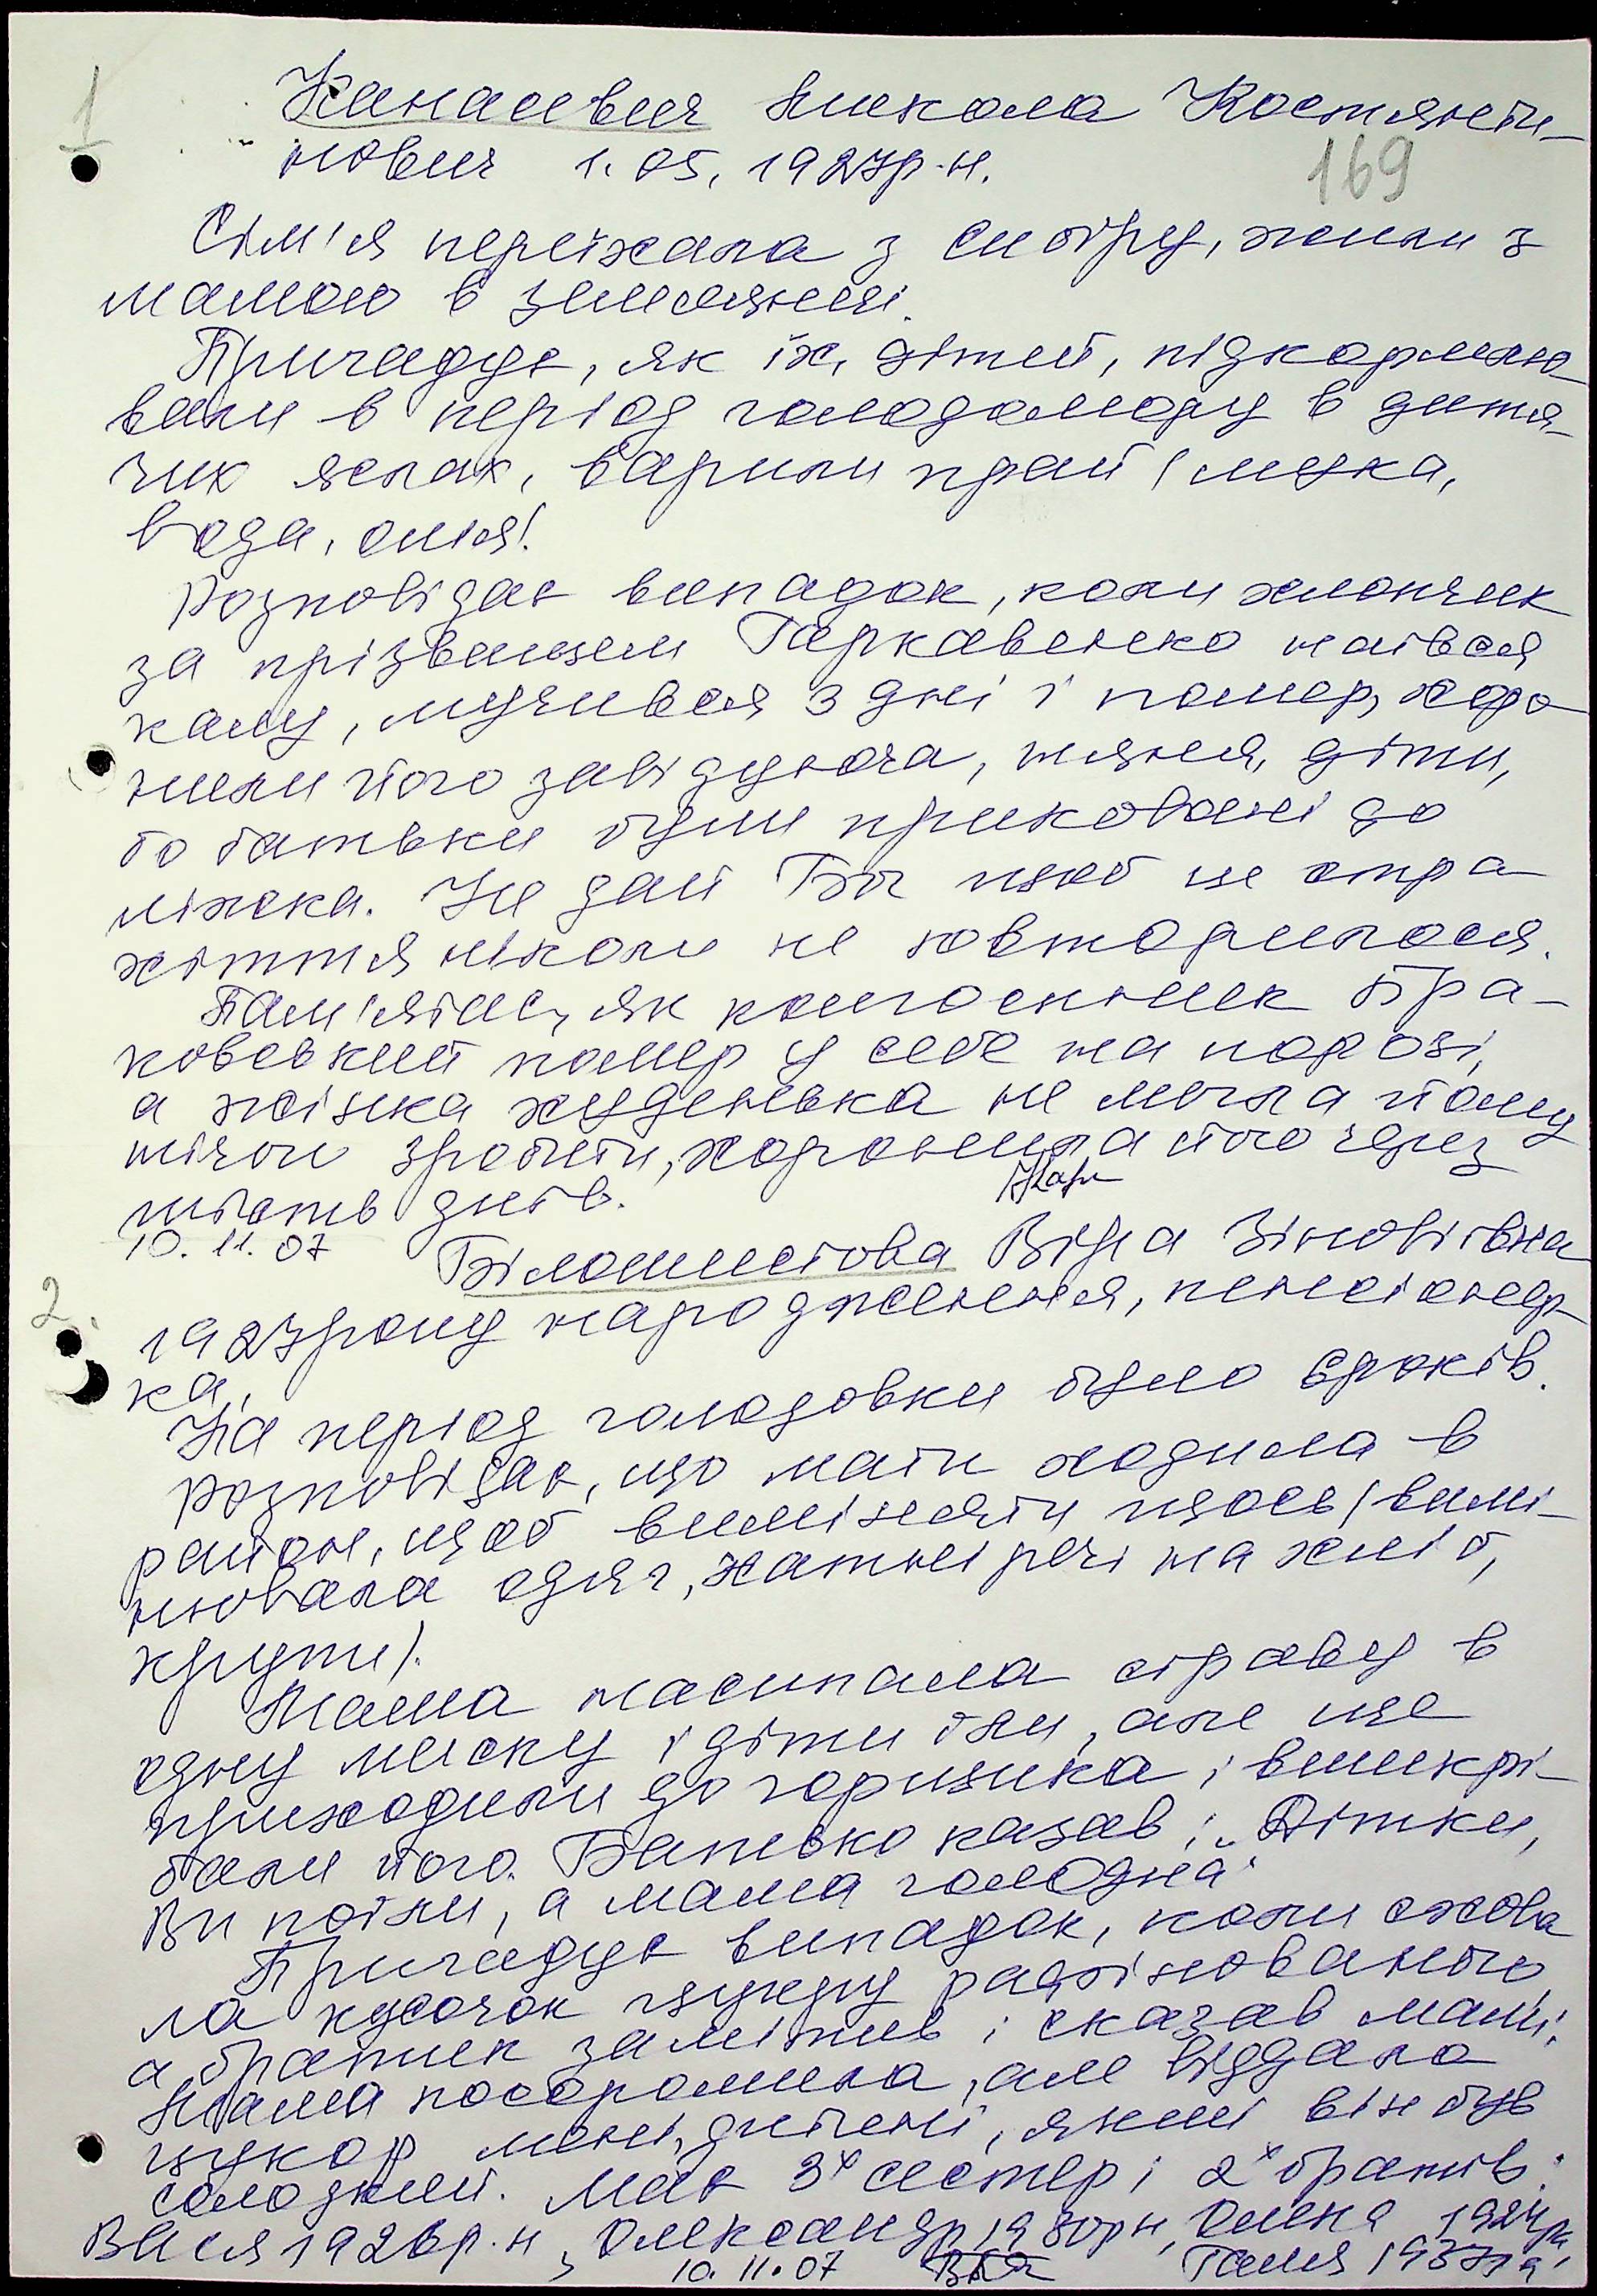 1
Канаєвич Микола Костянти-
нович 1.05.1927р.н.
169
Сім'я переїжала з Сибіру, жили з
мамою в землянці.
Пригадує, як їх, дітей, підкормлю-
вали в період голодомору в дитя-
чих яслах, варили прай (мука,
вода, олія).
Розповідає випадок, коли хлопчик
за прізвищем Гаркавенко наївся
калу, мучився 3 дні і помер, хоро-
нили його завідуюча, няня, діти,
бо батьки були приковані до
ліжка. Не дай Бог щоб це стра-
хіття ніколи не повторилося.
Пам'ятає, як колгоспник Бра-
ковський помер у себе на порозі,
а жінка худенька не могла йому
нічого зробити, хоронила його через
шість днів.
10.11.07
2.
Біломистова Віра Зіновіївна
1927 року народження, пенсіонер-
ка.
На період голодовки було 6 років.
Розповідає, що мати ходила в
район, щоб виміняти щось (вимі-
нювала одяг, хатні речі на хліб,
крупи).
Мама насипала страву в
одну миску і діти їли, але ще
приходили до горщика і вишкрі-
бали його. Батько казав: „Дітки,
Ви поїли, а мама голодна".
Пригадує випадок, коли схова
ла кусочок цукру рафінованого,
а братик замітив і сказав мамі.
Мама посоромила, але віддала
цукор мені, дитині, який він був
солодкий. Має 3х сестер і 2х братів:
Вася 1926р.н, Олександр 1930рн, Олена 1924р,
10.11.07 Галя 1937рн